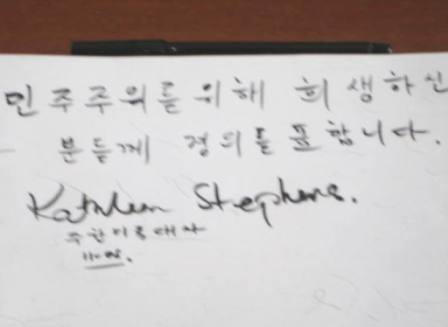 민주주의를 위해 희생하신
분들께 경의를 표합니다.
Kathleen Stephens.
주한미국대사